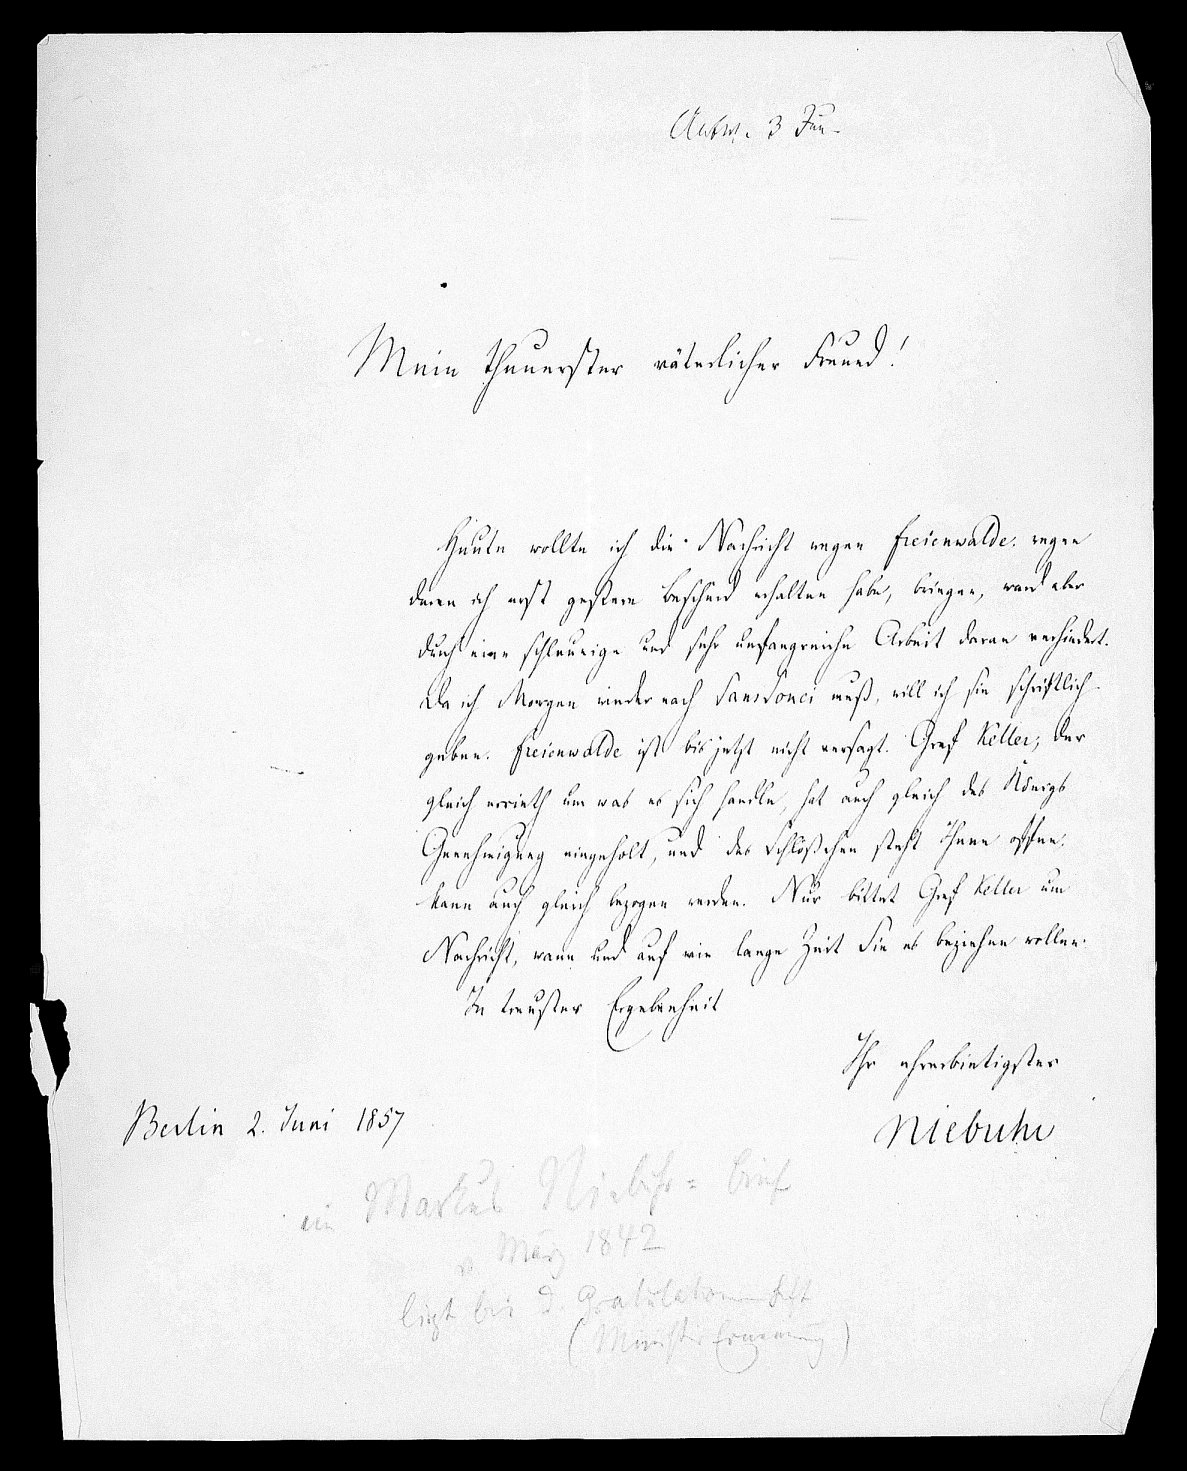 Antw. 3 Jun.
Mein theuerster väterlicher Freund!
Heute wollte ich die Nachricht wegen Freienwalde, wegen
deren ich erst gestern Bescheid erhalten habe, bringen, ward aber
durch eine schleunige und sehr umfangreiche Arbeit daran verhindert.
Da ich Morgen wieder nach Sanssouci muß, will ich sie schriftlich
geben. Freienwalde ist bis jetzt nicht versagt. Graf Keller, der
gleich errieth um was es sich handle, hat auch gleich des Königs
Genehmigung eingeholt, und das Schlößchen steht Ihnen offen,
kann auch gleich bezogen werden. Nur bittet Graf Keller um
Nachricht, wann und auf wie lange Zeit Sie es beziehen wollen.
In treuster Ergebenheit
Ihr ehrerbietigster
Niebuhr
Berlin 2. Juni 1857
ein Markus Niebuhr=brief
v März 1842
liegt bei d.
(Minister Ernennung)